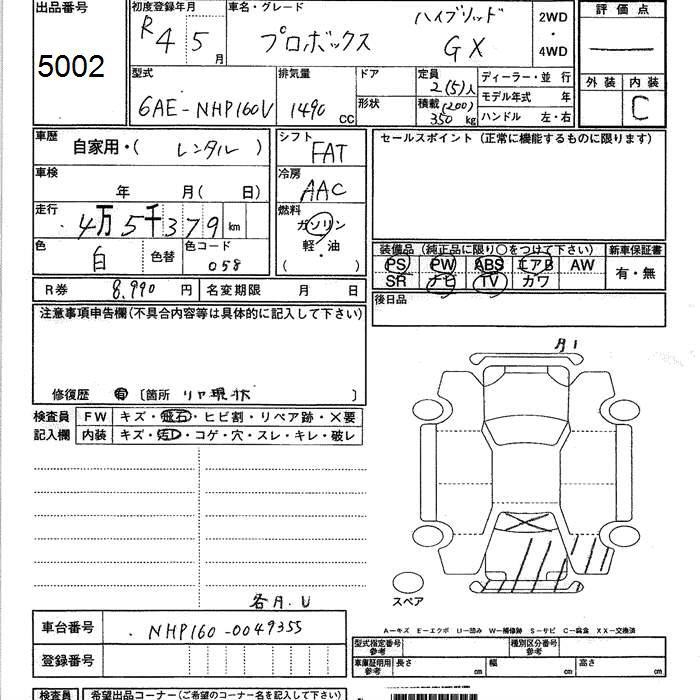 出品番号
5002
初度登録年月
R 4 5 月
車名・グレード
プロボックス
ハイブリッド
GX
2WD
・
4WD
評価点
外装 内装
C
型式
6AE-NHP160V
排気量
1490 cc
ドア
形状
定員
2(5)人
積載(200)
350 kg
ディーラー・並行
モデル年式 年
ハンドル 左・右
車歴
自家用・( レンタル )
シフト
FAT
セールスポイント(正常に機能するものに限ります)
車検
年 月( 日)
冷房
AAC
走行
4万5千379 km
燃料
ガソリン
軽・油
( )
色
白
色替
色コード
058
装備品(純正品に限り○をつけて下さい)
新車保証書
PS PW ABS エアB AW
SR ナビ TV カワ
有・無
R券 8,990 円
名変期限 月 日
後日品
注意事項申告欄(不具合内容等は具体的に記入して下さい)
修復歴 有 〔箇所 リヤ現状 〕
検査員
記入欄
FW キズ・飛石・ヒビ割・リペア跡・×要
内装 キズ・汚レ・コゲ・穴・スレ・キレ・破レ
スペア
車台番号
NHP160-0049355
登録番号
A-キズ E-エクボ U-凹み W-補修跡 S-サビ C-腐食 XX-交換済
型式指定番号
参考
種別区分番号
参考
車庫証明用
参考
長さ cm
幅 cm
高さ cm
検査員
希望出品コーナー(ご希望のコーナー名を記入下さい)